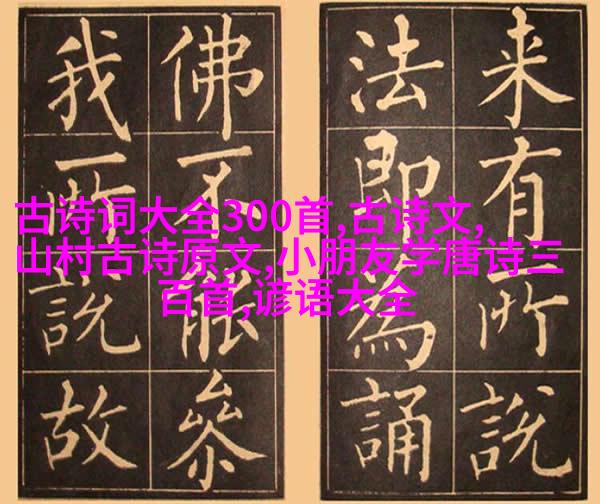 古诗词大全300首,古诗文,
山村古诗原文,小朋友学唐诗三
百首,谚语大全
来有所說
法即為誦
佛不能參
我所說故